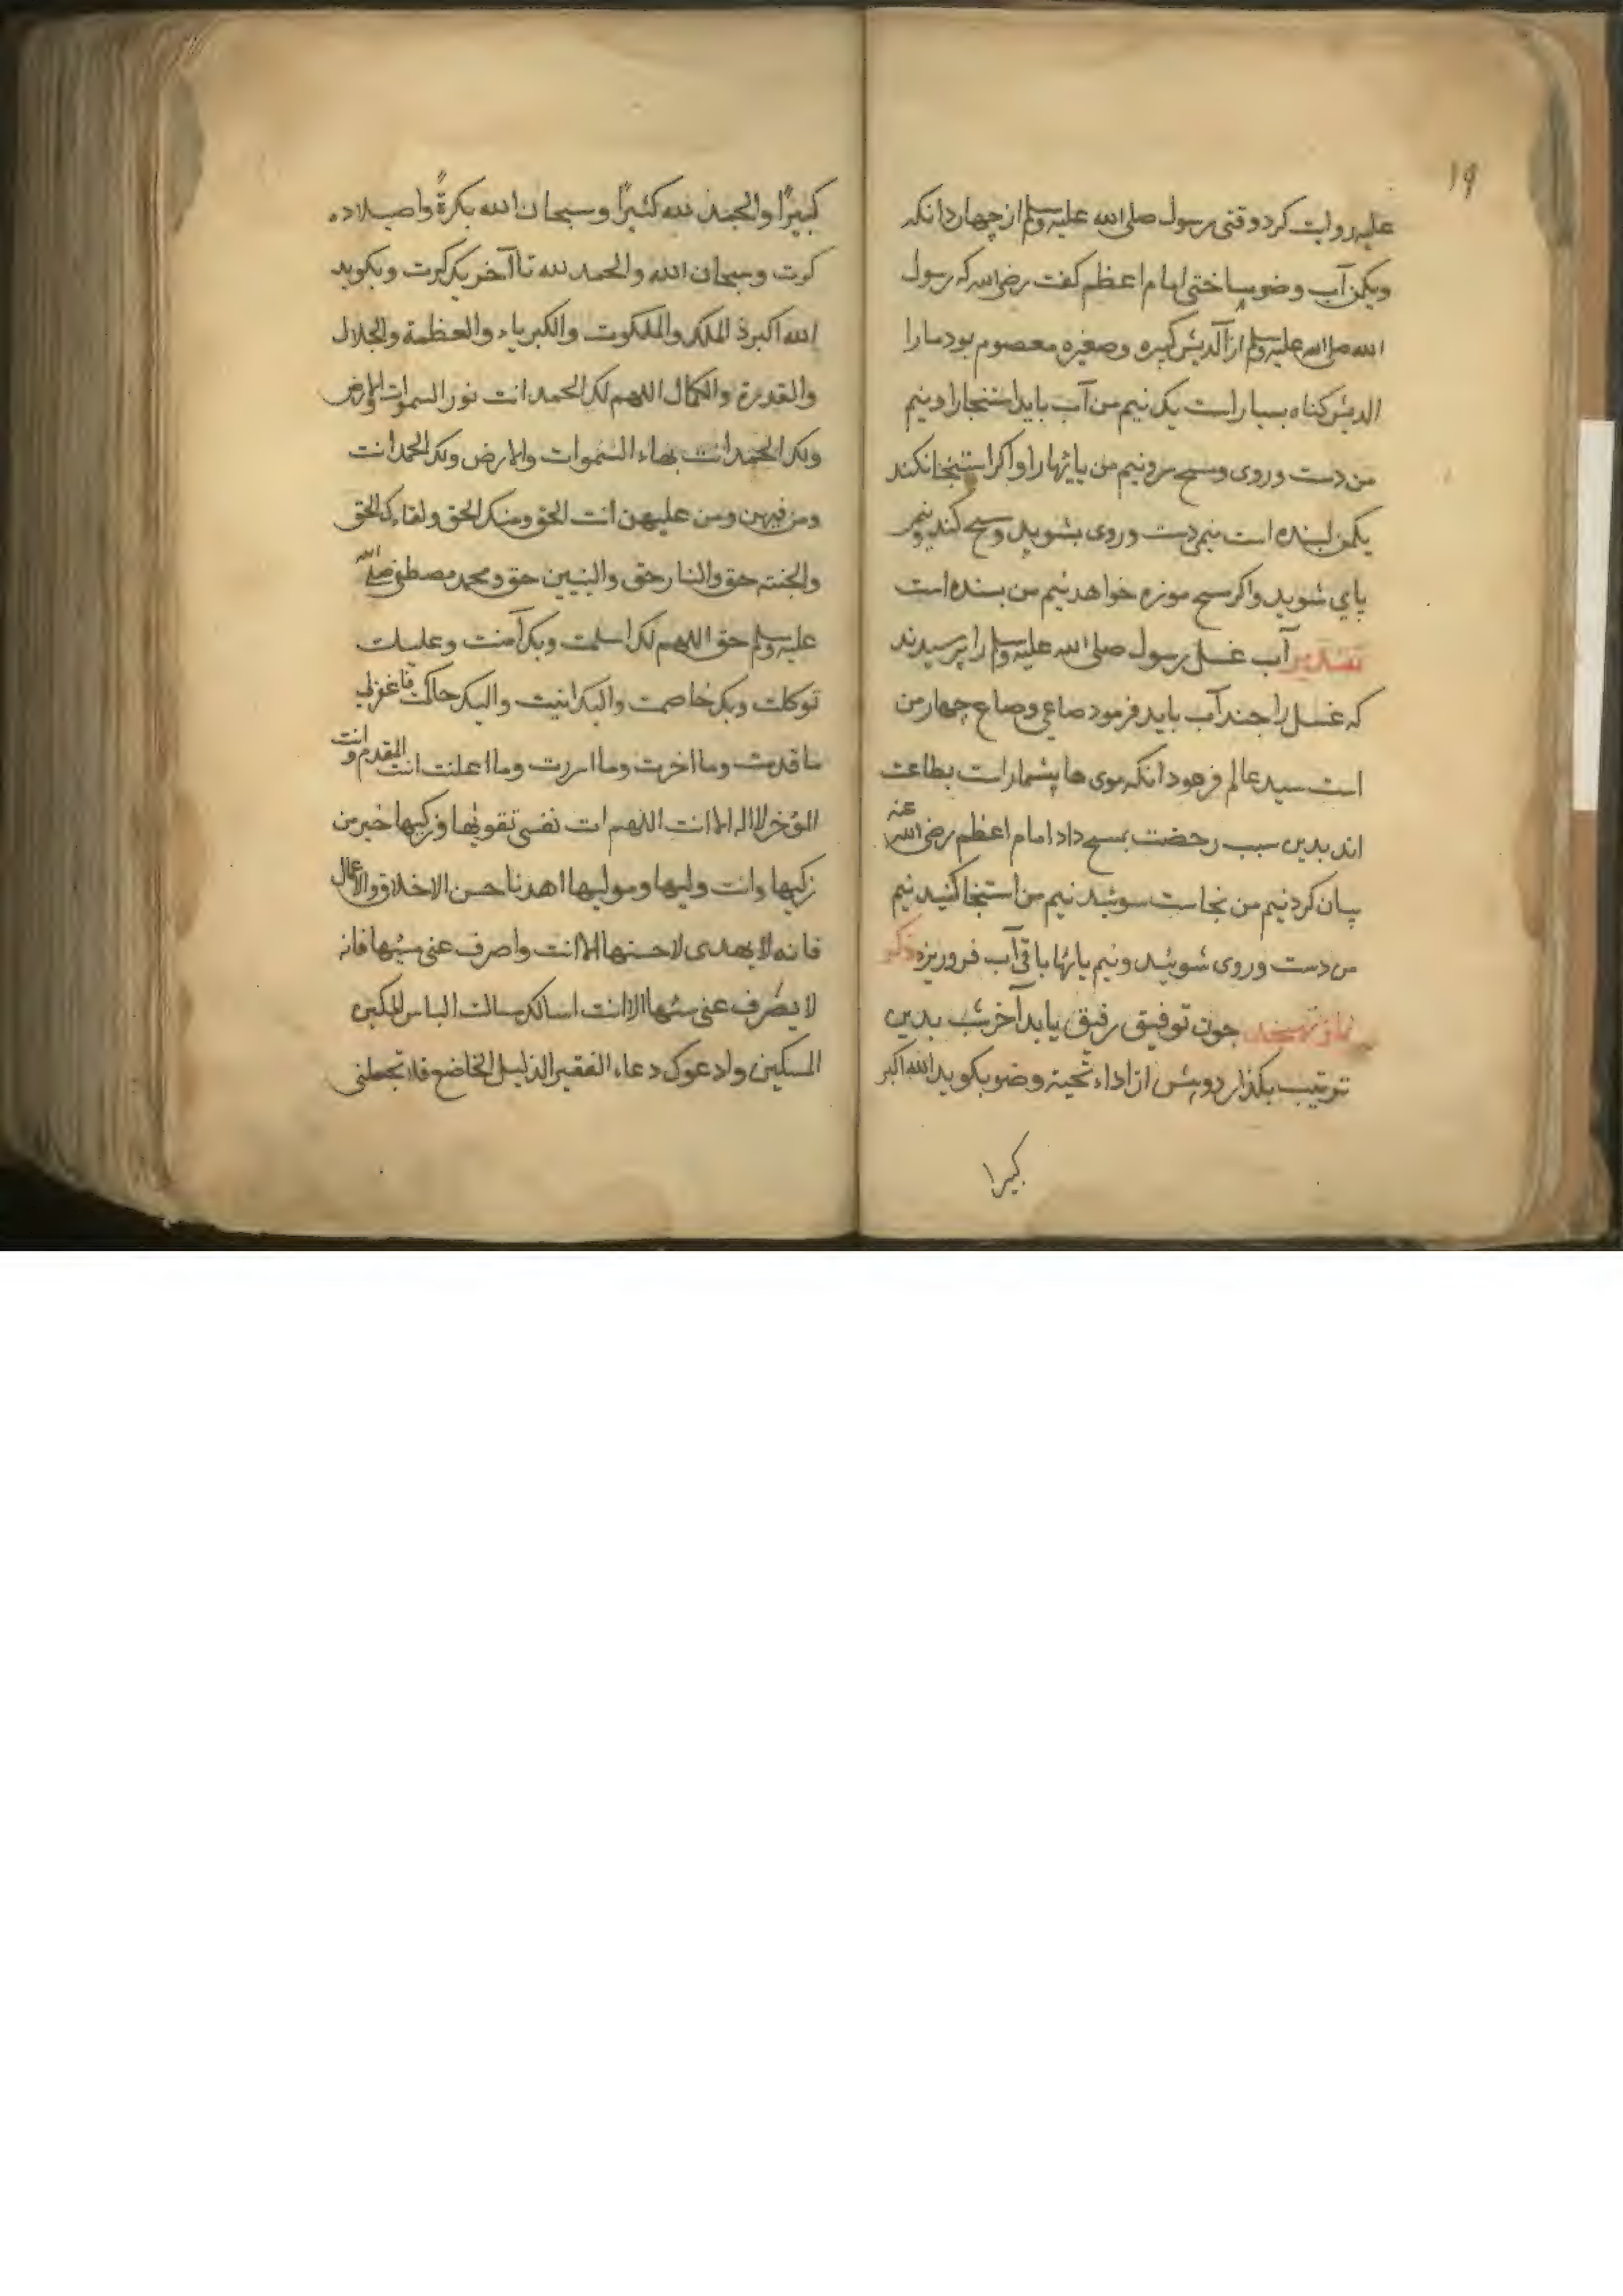 19
علیه روایت کرد وقتی رسول صلی الله علیه وسلم از چهار دانکه
ویکمن آب وضو ساختی امام اعظم کفت رضی الله که رسول
الله صلی الله علیه وسلم از آلدیش کبیره وصغیره معصوم بود مارا
الدیش کناه بسیار است یک نیم من آب باید استنجارا ونیم
من دست وروی ومسح سر ونیم من پایهارا واکر استنجا نکند
یکمن بسنده است نیمی دست وروی بشوید ومسح کند ونیم
پای شوید واکر مسح موزه خواهد نیم من بسنده است
تقدیر آب غسل رسول صلی الله علیه وسلم را پرسیدند
که غسل را چند آب باید فرمود صاعی وصاع چهار من
است سید عالم فرمود انکه موی ها بشمار است بطاعت
اند بدین سبب رخصت بمسح داد امام اعظم رضی الله عنه
بیان کرد نیم من نجاست سوئید نیم من استنجا کنید نیم
من دست وروی شوئید ونیم پائها باقی آب فروریزه ذکر
نماز تهجد چون توفیق رفیق یابد آخر شب بدین
ترتیب بکذارد وپیش از اداء تحیة وضو بکوید الله اکبر
کبیرا
کبیرًا والحمد لله کثیرًا وسبحان الله بکرةً واصیلا ده
کرت وسبحان الله والحمد لله تا آخر یک کرت وبکوید
الله اکبر ذ الملک والملکوت والکبریاء والعظمة والجلال
والقدرة والکمال اللهم لک الحمد انت نور السموات والارض
ولک الحمد انت بهاء السموات والارض ولک الحمد انت
ومن فیهن ومن علیهن انت الحق ومنک الحق ولقاءک الحق
والجنة حق والنار حق والنبیین حق ومحمد مصطفی صلی الله
علیه وسلم حق اللهم لک اسلمت وبک آمنت وعلیک
توکلت وبک خاصمت والیک انیت والیک حاکمت فاغفرلی
ما قدمت وما اخرت وما اسررت وما اعلنت انت المقدم وانت
المؤخر لا اله الا انت اللهم ات نفسی تقویها وزکیها خیر من
زکیها وانت ولیها ومولیها اهدنا حسن الاخلاق والاعمال
فانه لا یهدی لاحسنها الا انت واصرف عنی سیئها فانه
لا یصرف عنی سئها الا انت اسالک مسالت البایس المسکین
المسکین وادعوک دعاء الفقیر الذلیل الخاضع فلا تجعلنی